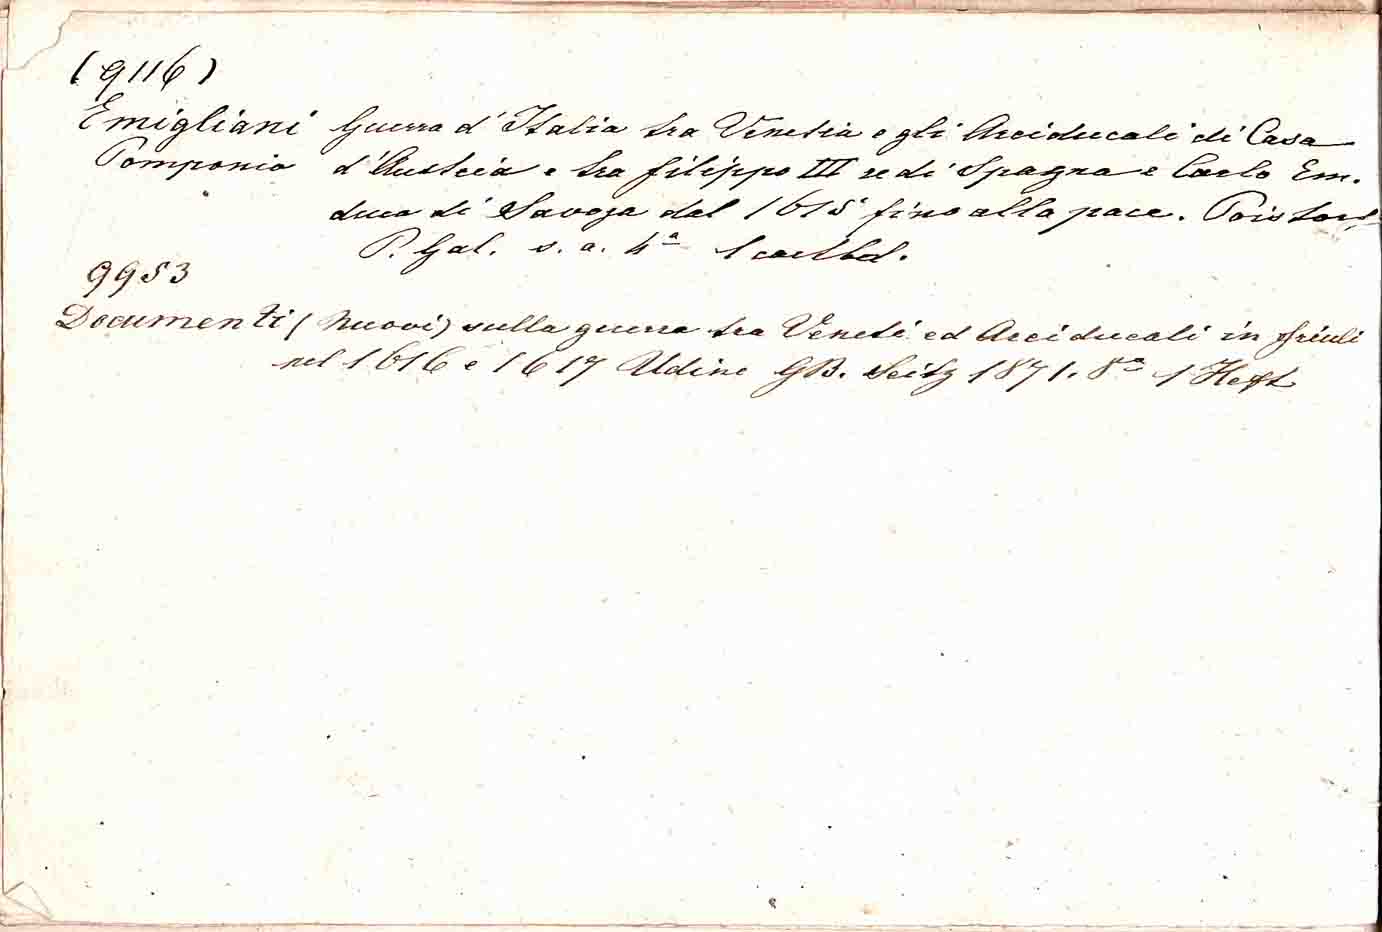 (9116)
Emigliani Guerra d'Italia tra Venetia e gli Arciducali di Casa
Pomponio d'Austria e tra filippo III re di Spagna e Carlo Em.
duca di Savoja dal 1615 fino alla pace. Poistorf,
P. Gal. s. a. 4ª 1 cartbd.
9953
Documenti (Nuovi) sulla guerra tra Veneti ed Arciducali in friuli
nel 1616 e 1617 Udine GB. Seitz 1871. 8ª 1 Heft